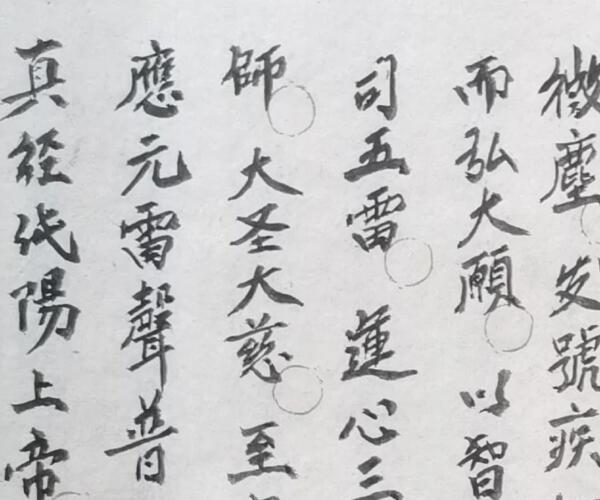 微塵。发號疾
而弘大願。以智
司五雷。運心三
師。大圣大慈。至
應元雷聲普
真經純陽上帝